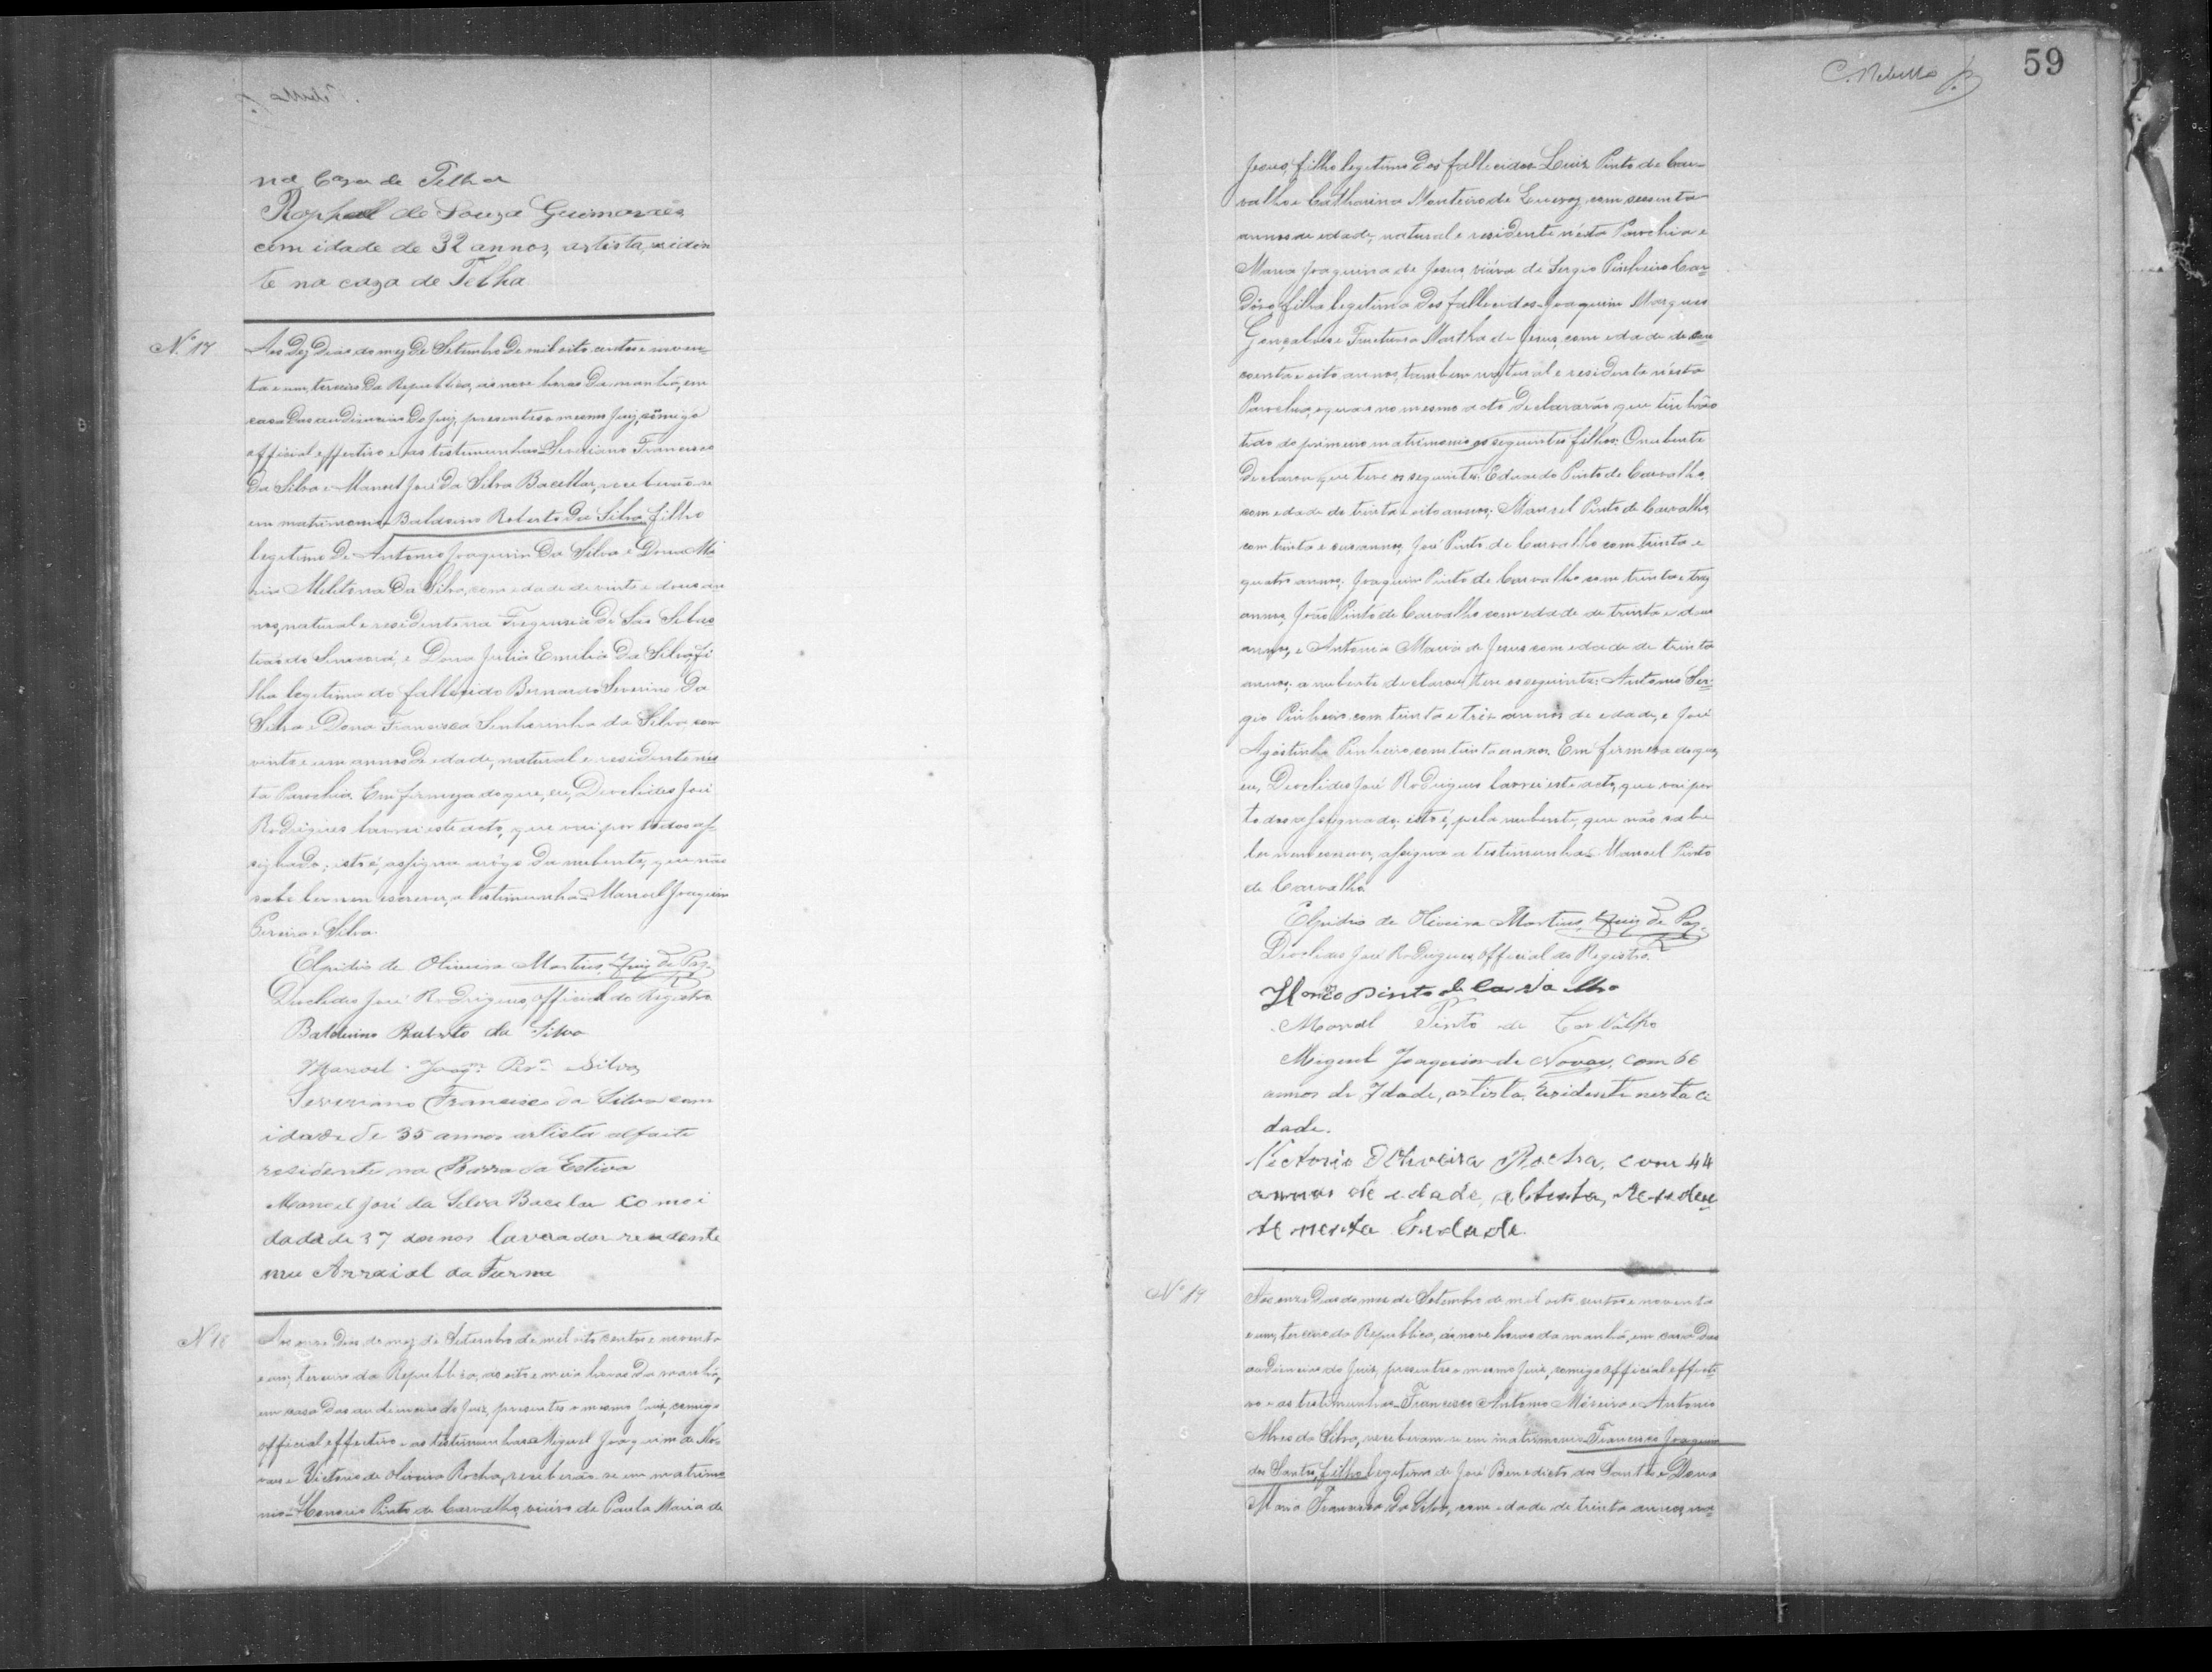 na Caza de Telha
Raphael de Souza Guimarães
com idade de 32 annos, artista, residen
te na caza de Telha
Nº 17
Aos dez dias do mez de Setembro de mil oito centos e noven-
ta e um, terceiro da Republica, ás nove horas da manhã, em
casa das audiencias do Juiz, presentes o mesmo Juiz, comigo
official effectivo e as testimunhas Severiano Francisco
da Silva e Manoel José da Silva Bacellar, receberão-se
em matrimonio Balduino Roberto da Silva, filho
legitimo de Antonio Joaquim da Silva e Dona Ma
ria Militina da Silva, com edade de vinte e dous an
nos, natural e residente na Freguezia de São Sebas
tião do Sincorá, e Dona Julia Emilia da Silva, fi
lha legitima do fallecido Bernardo Severino da
Silva e Dona Francisca Senhorinha da Silva com
vinte e um annos de edade, natural e residente nes
ta Parochia. Em firmeza do que, eu, Deoclides José
Rodrigues lavrei este acto, que vai por todos as-
signado; isto é, assigna arôgo da nubente, que não
sabe ler nem escrever, a testimunha Manoel Joaquim
Pereira e Silva.
Elpidio de Oliveira Martins, Juiz de Paz.
Deoclides José Rodrigues, official do Registro
Balduino Roberto da Silva
Manoel Joaqm. Perª e Silva
Severiano Francisco da Silva com
idade de 35 annos artista alfaite
residente na Barra da Estiva
Manoel José da Silva Bacelar com i
dade de 37 annos lavrador residente
no Arraial da Furna
Nº 18
Aos onze dias do mez de Setembro de mil oito centos e noventa
e um, terceiro da Republica, ás oito e meia horas da manhã,
em casa das audiencias do Juiz, presentes o mesmo Juiz, comigo
official effectivo e as testimunhas Miguel Joaquim de No-
vaes e Victorio de Oliveira Rocha, receberão-se em matrimo
nio Honorio Pinto de Carvalho, viúvo de Paula Maria de
C. Rebello Jr.
59
Jesus, filho legitimo dos fallecidos Luiz Pinto de Car-
valho e Catharina Monteiro de Queiroz, com sessenta
annos de edade, natural e residente nésta Parochia e
Maria Joaquina de Jesus, viúva de Sergio Pinheiro Car-
dôso, filha legitima dos fallecidos Joaquim Marques
Gonçalves e Fructuosa Martha de Jesus, com edade de cin-
coenta e oito annos, tambem natural e residente nésta
Parochia, e quaes no mesmo acto declararão, que tinhão
tido do primeiro matrimonio os seguintes filhos: O nubente
declarou que teve os seguintes: Eduardo Pinto de Carvalho,
com edade de trinta e oito annos; Manoel Pinto de Carvalho,
com trinta e seis annos; José Pinto de Carvalho com trinta e
quatro annos; Joaquim Pinto de Carvalho com trinta e trez
annos, João Pinto de Carvalho com edade de trinta e dous
annos, e Antonia Maria de Jesus com edade de trinta
annos; a nubente declarou teve os seguintes: Antonio Ser-
gio Pinheiro com trinta e tres annos de edade, e José
Agostinho Pinheiro com trinta annos. Em firmeza do que,
eu, Deoclides José Rodrigues lavrei este acto, que vai por
todos assignado; isto é, pela nubente, que não sabe
ler nem escrever, assigna a testimunha Manoel Pinto
de Carvalho.
Elpidio de Oliveira Martins, Juiz de Paz.
Deoclides José Rodrigues, official do Registro.
Honro pinto de Carvalho
Manoel Pinto de Carvalho
Miguel Joaquim de Novaes, com 66
annos de Idade, artista, residente nesta ci
dade.
Victorio Oliveira Rocha, com 44
annos de edade, artista, residen
te nesta Cidade.
Nº 19
Aos onze dias do mez de Setembro de mil oito centos e noventa
e um, terceiro da Republica, ás nove horas da manhã, em casa das
audiencias do Juiz, presentes o mesmo Juiz, comigo official effecti-
vo e as testimunhas Francisco Antonio Moreira e Antonio
Alves da Silva, receberam-se em matrimonio Francisco Joaquim
dos Santos, filho legitimo de José Benedicto dos Santos e Dona
Maria Francisca da Silva, com edade de trinta annos, na-